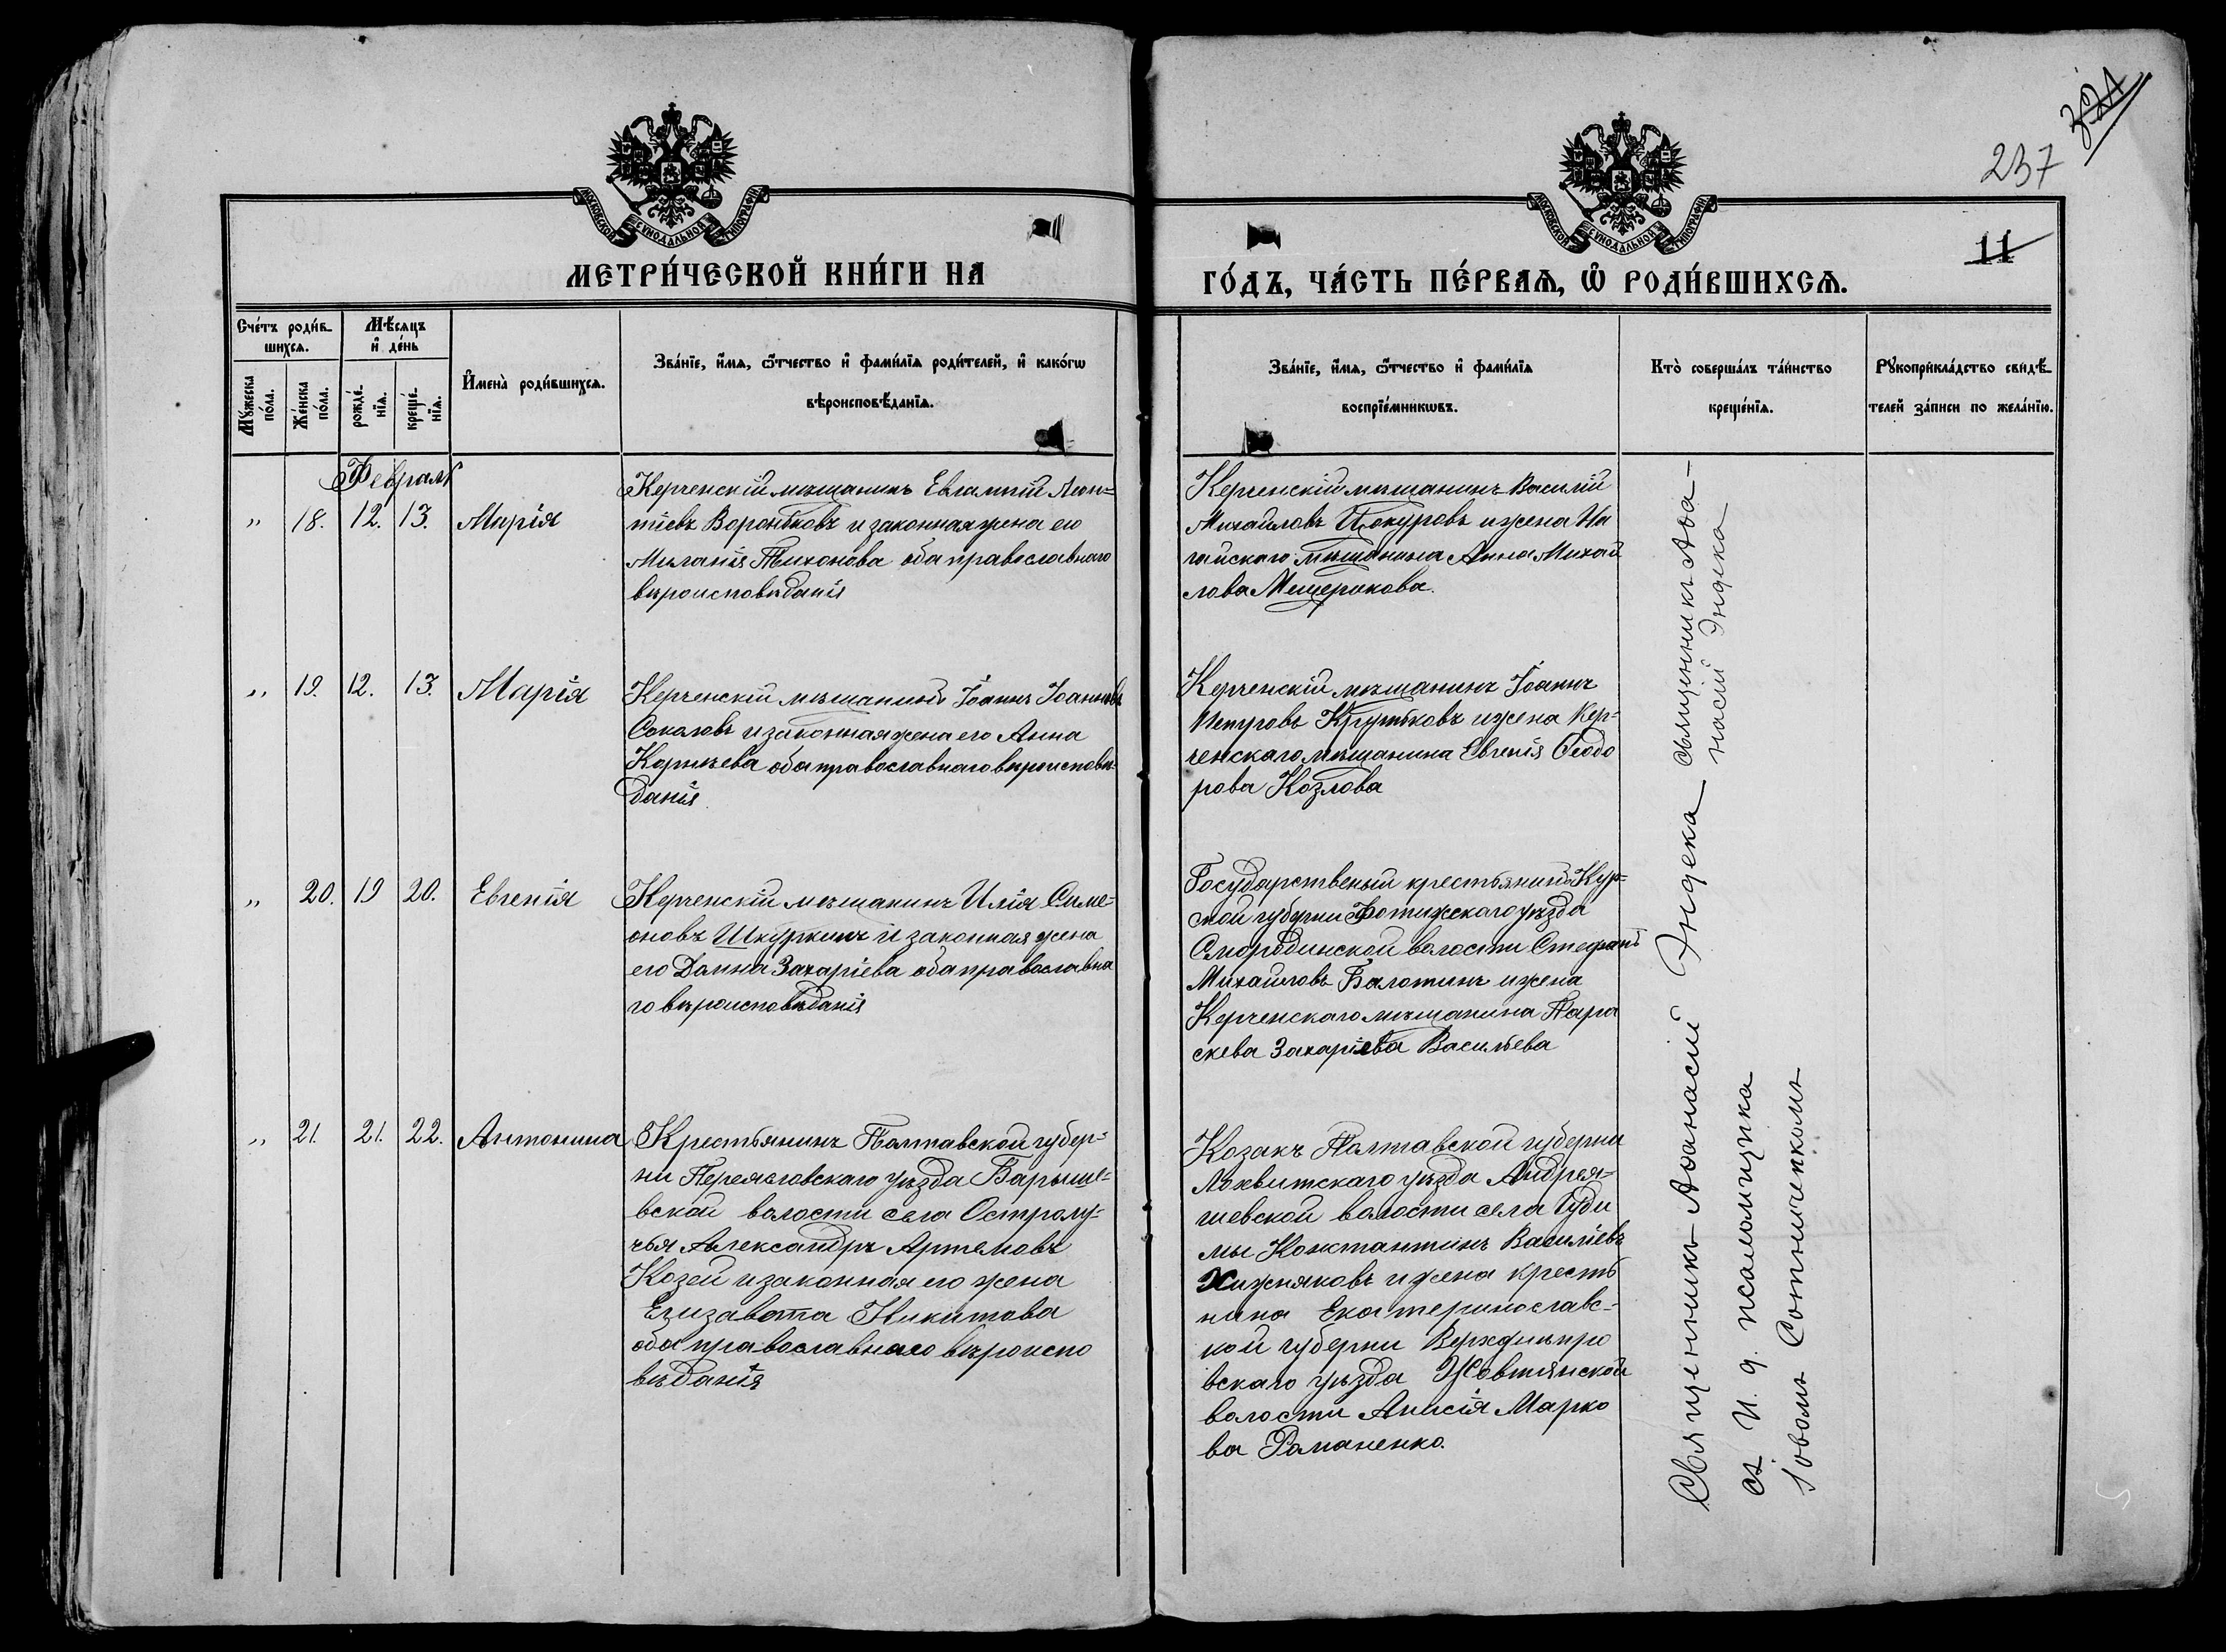 324
237
11
МОСКОВСКОЙ СѴНОДАЛЬНОЙ ТИПОГРАФІИ
МОСКОВСКОЙ СѴНОДАЛЬНОЙ ТИПОГРАФІИ
МЕТРИ́ЧЕСКОЙ КНИ́ГИ НА
ГО́ДЪ, ЧА́СТЬ ПЕ́РВАѦ, Ѽ РОДИ́ВШИХСѦ.
Сче́тъ роди́в-
шихсѧ.
Мѣ́сѧцъ
и҆ де́нь
Мꙋ́жеска
по́ла.
Же́нска
по́ла.
рожде́-
нїѧ.
креще́-
нїѧ.
И҆мена̀ роди́вшихсѧ.
Зва́нїе, и҆́мѧ, ѻ҆́тчество и҆ фами́лїѧ роди́телей, и҆ како́гѡ
вѣроисповѣ́данїѧ.
Зва́нїе, и҆́мѧ, ѻ҆́тчество и҆ фами́лїѧ
воспрїе́мникѡвъ.
Кто̀ соверша́лъ та́инство
креще́нїѧ.
Рꙋкоприкла́дство свидѣ́-
телей за́писи по жела́нїю.
Февраль
" 18. 12. 13. Марія
Керченскій мѣщанинъ Евлампій Леон=
тіевъ Воронковъ и законная жена его
Миланія Тихонова оба православнаго
вѣроисповѣданія
Керченскій мѣщанинъ Василій
Михайловъ Щокуровъ и жена На
гайскаго мѣщанина Анна Михай
лова Мещерякова.
" 19. 12. 13. Марія
Керченскій мѣщанинъ Іоаннъ Іоанновъ
Соколовъ и законная жена его Анна
Корнѣева оба православнаго вѣроисповѣ-
данія
Керченскій мѣщанинъ Іоаннъ
Петровъ Крутьковъ и жена Кер=
ченскаго мѣщанина Евгенія Ѳеодо
рова Козлова
" 20. 19 20. Евгенія
Керченскій мѣщанинъ Илія Симе=
оновъ Шкуркинъ и законная жена
его Домна Захаріева оба православна
го вѣроисповѣданія
Государственый крестьянинъ Кур=
ской губерни Фотижскаго уѣзда
Смородинской волости Стефанъ
Михайловъ Балотинъ и жена
Керченскаго мѣщанина Пара
скева Захаріева Васильева
" 21. 21. 22. Антонина
Крестьянинъ Полтавской губер=
ни Переясловскаго уѣзда Барыше-
вской волости села Остролу-
чья Александръ Артемовъ
Козей и законная его жена
Елизавета Никитова
оба православнаго вѣроиспо
вѣданія
Козакъ Полтавской губерни
Лохвитскаго уѣзда Андрея=
шевской волости села Гуди
мы Константинъ Василіевъ
Хижняковъ и жена крестья
нина Екатеринославс=
кой губерни Верхднѣпро
вскаго уѣзда Жовтянской
волости Анисія Марко
ва Романенко.
Священникъ Аѳанасій Эндека
съ И. д. псаломщика
Іовомъ Сотниченкомъ
священникъ Аѳа-
насій Эндека